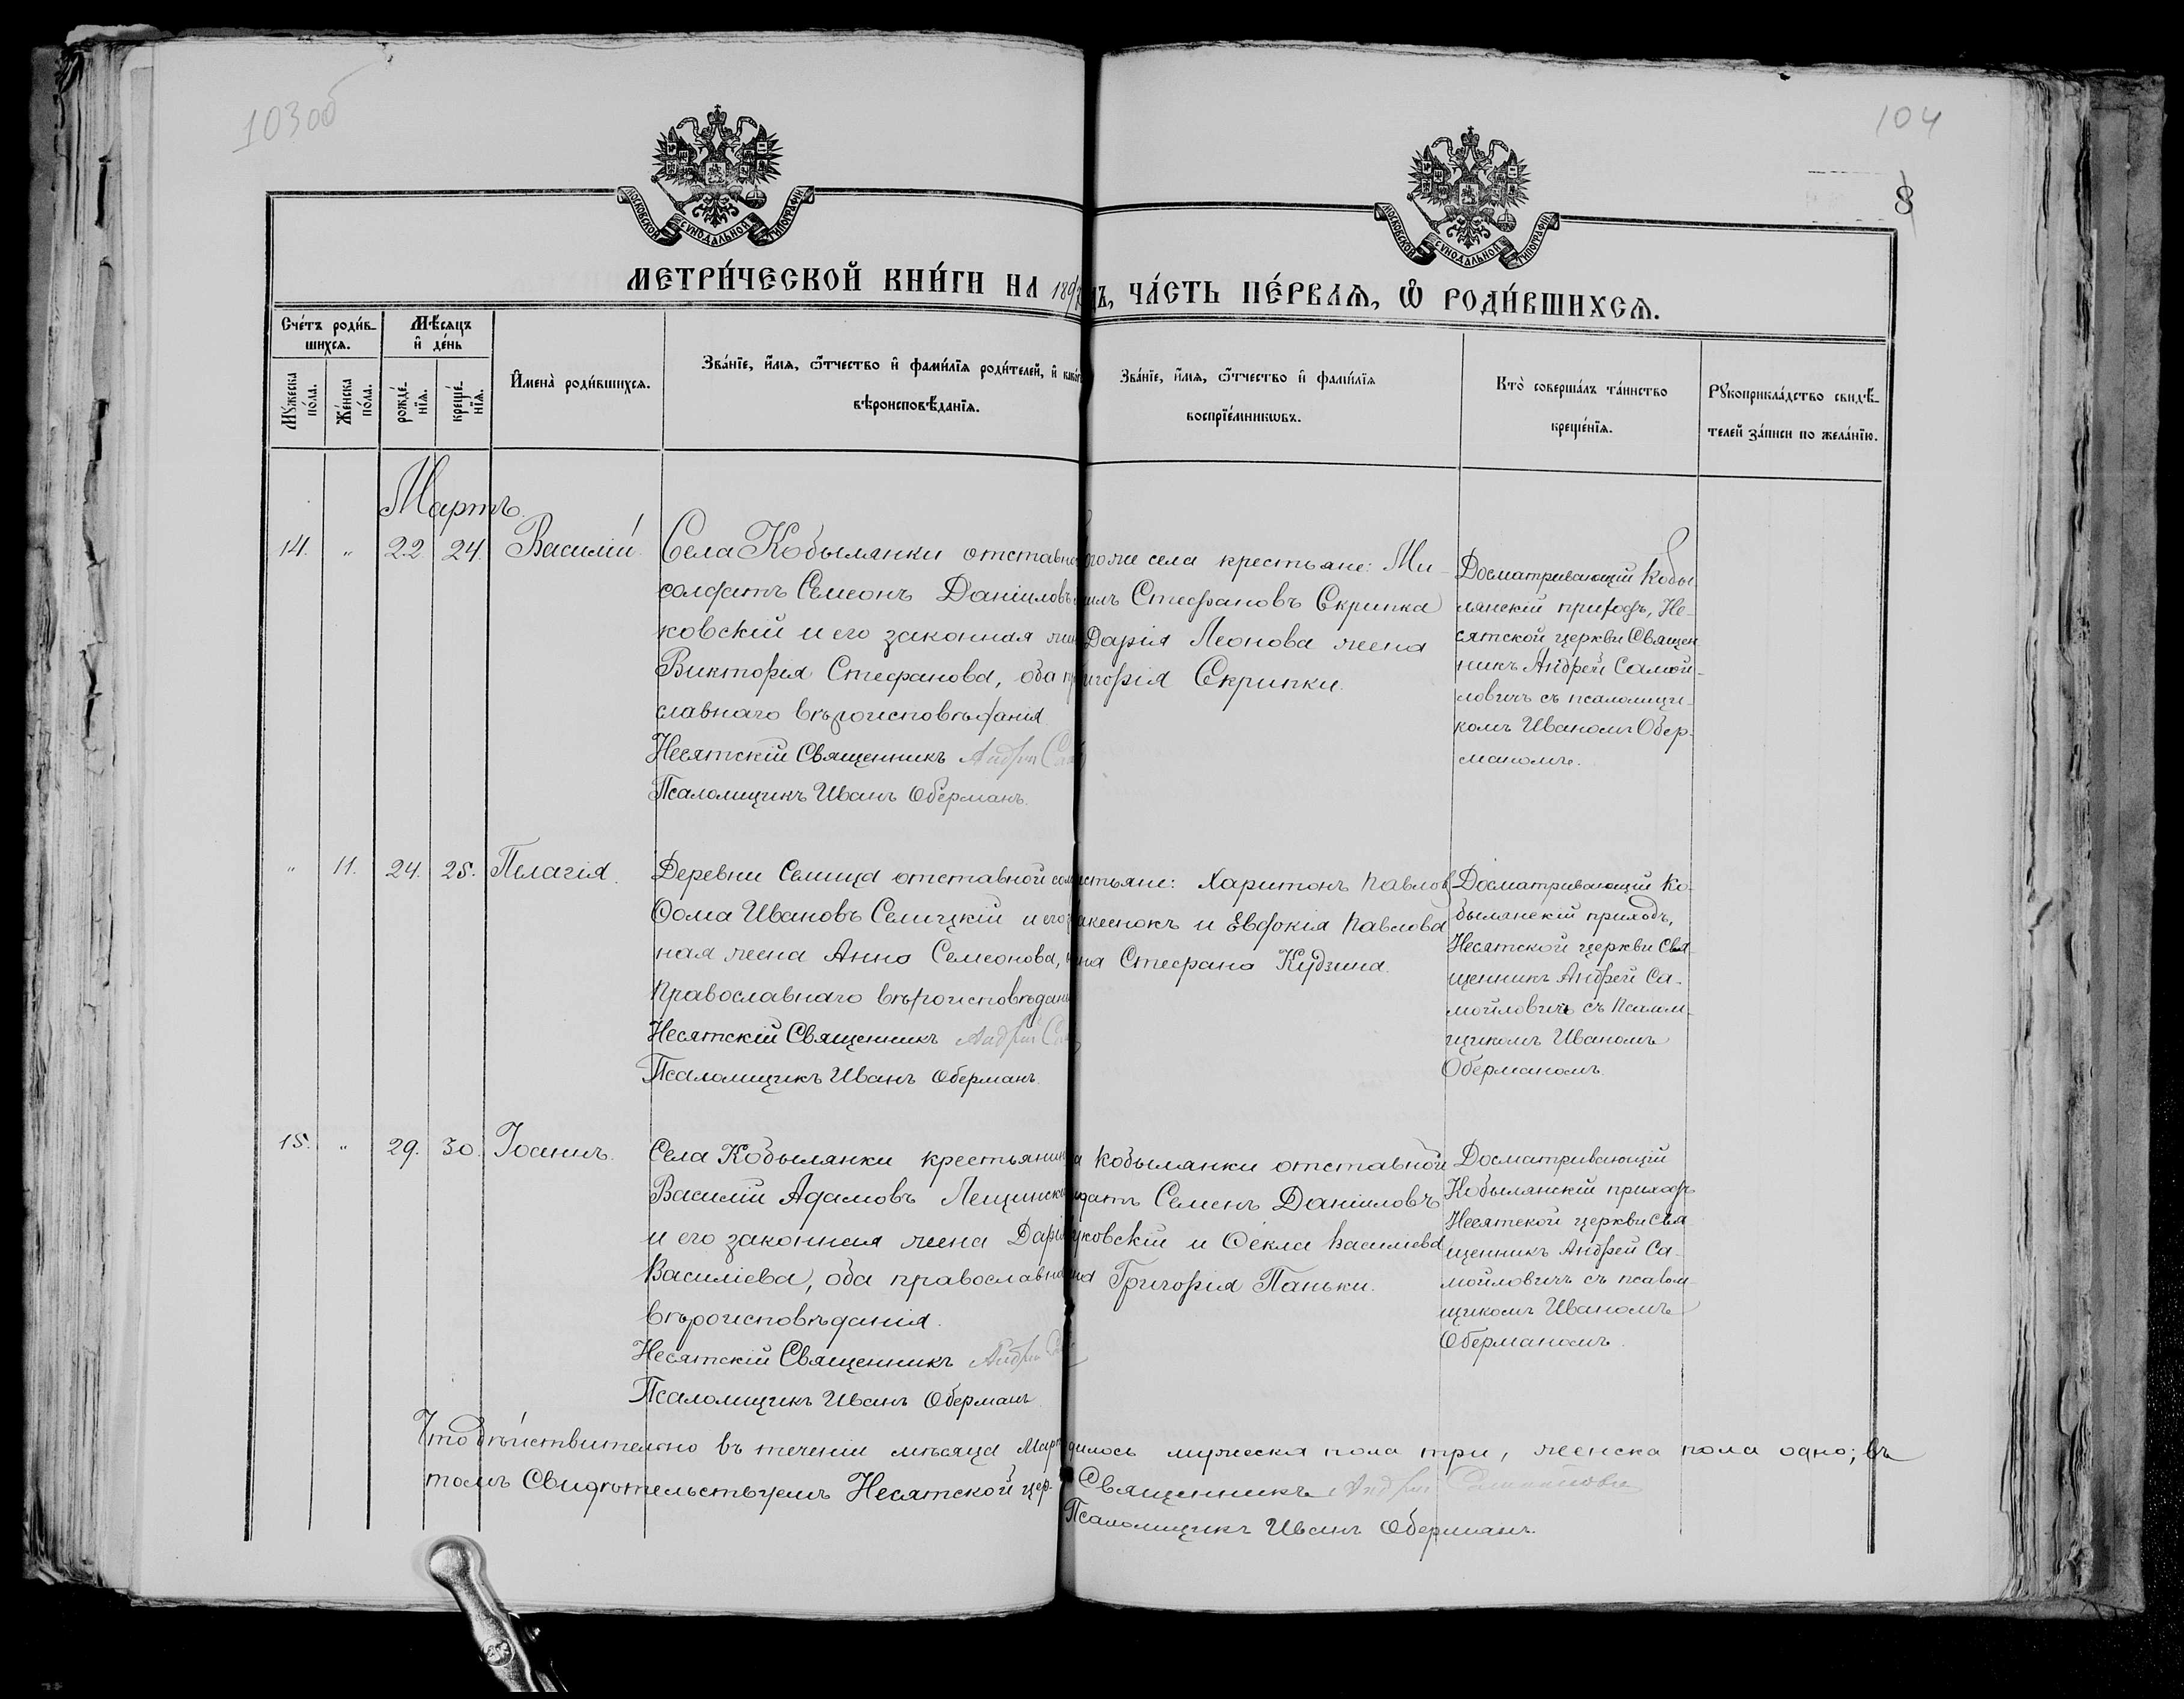 103об
104
8
МОСКОВСКОЙ СѴНОДАЛЬНОЙ ТИПОГРАФІИ
МОСКОВСКОЙ СѴНОДАЛЬНОЙ ТИПОГРАФІИ
МЕТРИ́ЧЕСКОЙ КНИ́ГИ НА 189 ЧА́СТЬ ПЕ́РВАѦ, Ѿ РОДИ́ВШИХСѦ.
Сче́тъ роди́в-
шихсѧ.
Мѣ́сяцъ
и҆ де́нь
Мꙋ́жеска
по́ла.
Же́нска
по́ла.
рожде́-
нїѧ.
креще́-
нїѧ.
И҆мена̀ роди́вшихсѧ.
Зва́нїе, и҆́мѧ, ѻ҆́тчество и҆ фами́лїѧ роди́телей, и҆
вѣроисповѣ́данїѧ.
Зва́нїе, и҆́мѧ, ѻ҆́тчество и҆ фами́лїѧ
воспрїе́мникѡвъ.
Кто̀ соверша́лъ та́инство
креще́нїѧ.
Рꙋкоприкла́дство свидѣ́-
телей за́писи по жела́нїю.
Мартъ.
14. „ 22 24. Василій
Села Кобылянки отставно
солдатъ Семеонъ Даніиловъ
ковскій и его законная
Викторія Стефанова, оба
славнаго вѣроисповѣданія
Несятскій Священникъ Андрей
Псаломщикъ Иванъ Оберманъ.
гоже села крестьяне: Ми-
Стефановъ Скрипка
Дарія Леонова жена
игорія Скрипки.
Досматривающій Кобы
лянскій приходъ, Не-
сятской церкви Священ
никъ Андрей Самой-
ловичъ съ псаломщи-
комъ Иваномъ Обер-
маномъ.
„ 11. 24. 25. Пелагія.
Деревни Селища отставной сол
Ѳома Ивановъ Селицкій и его
ная жена Анна Семеонова,
Православнаго вѣроисповѣдані
Несятскій Священникъ Андрей
Псаломщикъ Иванъ Оберманъ.
стьяне: Харитонъ Павлов
и Евдокія Павлова
на Стефана Кудзина.
Досматривающій Ко-
былянскій приходъ,
Несятской церкви Свя-
щенникъ Андрей Са-
мойловичъ съ Псалом-
щикомъ Иваномъ
Оберманомъ.
15. „ 29. 30. Іоаннъ.
Села Кобылянки крестьянин
Василій Адамовъ Лещинск
и его законная жена Дарія
Василіева, оба православна
вѣроисповѣданія.
Несятскій Священникъ Андрей
Псаломщикъ Иванъ Оберманъ
а Кобылянки отставной
датъ Семенъ Даніиловъ
ковскій и Ѳекла Василіева
на Григорія Паньки.
Досматривающій
Кобылянскій приходъ
Несятской церкви Свя
щенникъ Андрей Са-
мойловичъ съ псалом
щикомъ Иваномъ
Оберманомъ.
Что дѣйствительно въ теченіи мѣсяца Март дилось мужеска пола три, женска пола одно; въ
томъ Свидѣтельствуемъ Несятской цер. Священникъ Андрей
Псаломщикъ Иванъ Оберманъ.